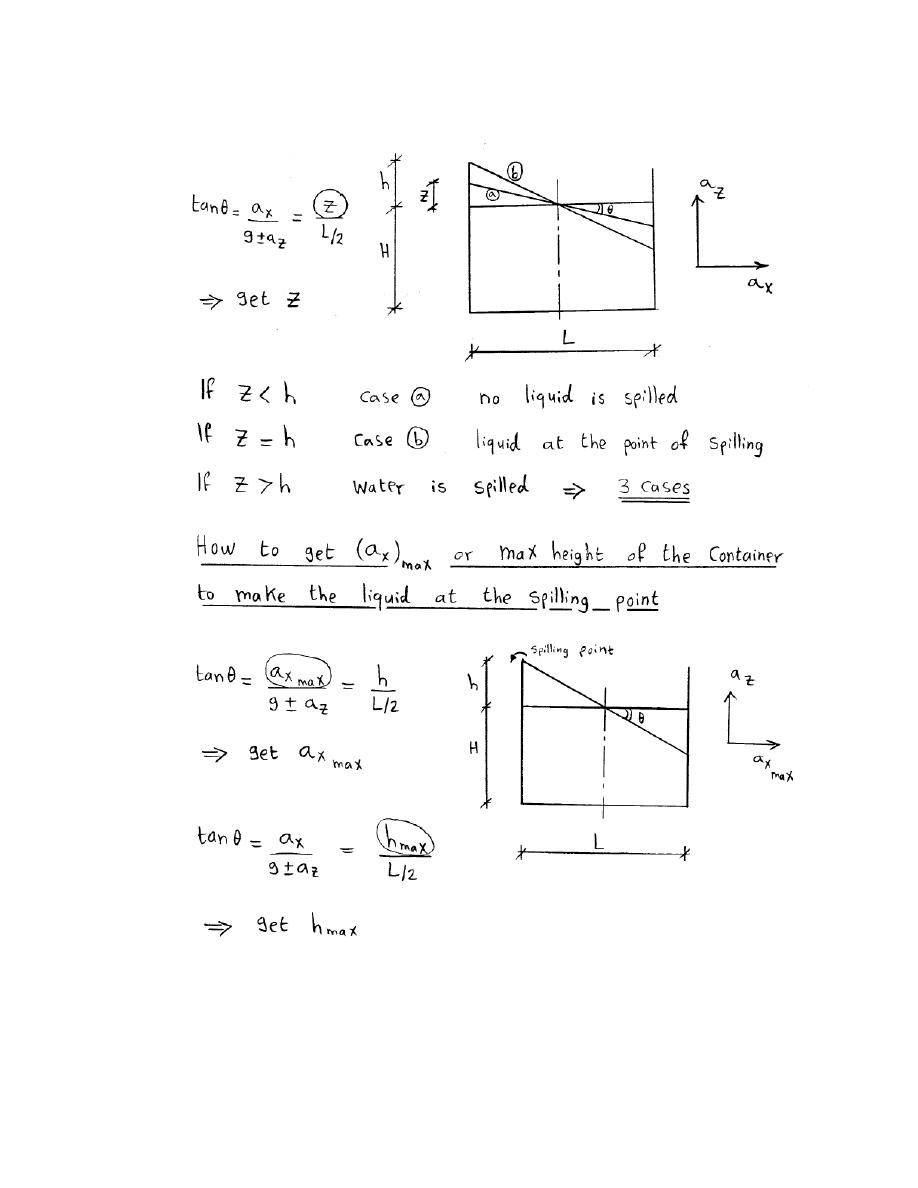 tanθ = ax / g±az = z / L/2
⇒ get z
h
z
H
ⓑ
ⓐ
θ
L
az
ax
If z < h case ⓐ no liquid is spilled
If z = h case ⓑ liquid at the point of spilling
If z > h water is spilled ⇒ 3 cases
How to get (ax)max or max height of the container
to make the liquid at the spilling point
tanθ = ax max / g ± az = h / L/2
⇒ get ax max
spilling point
h
H
θ
L
az
ax max
tanθ = ax / g±az = hmax / L/2
⇒ get hmax